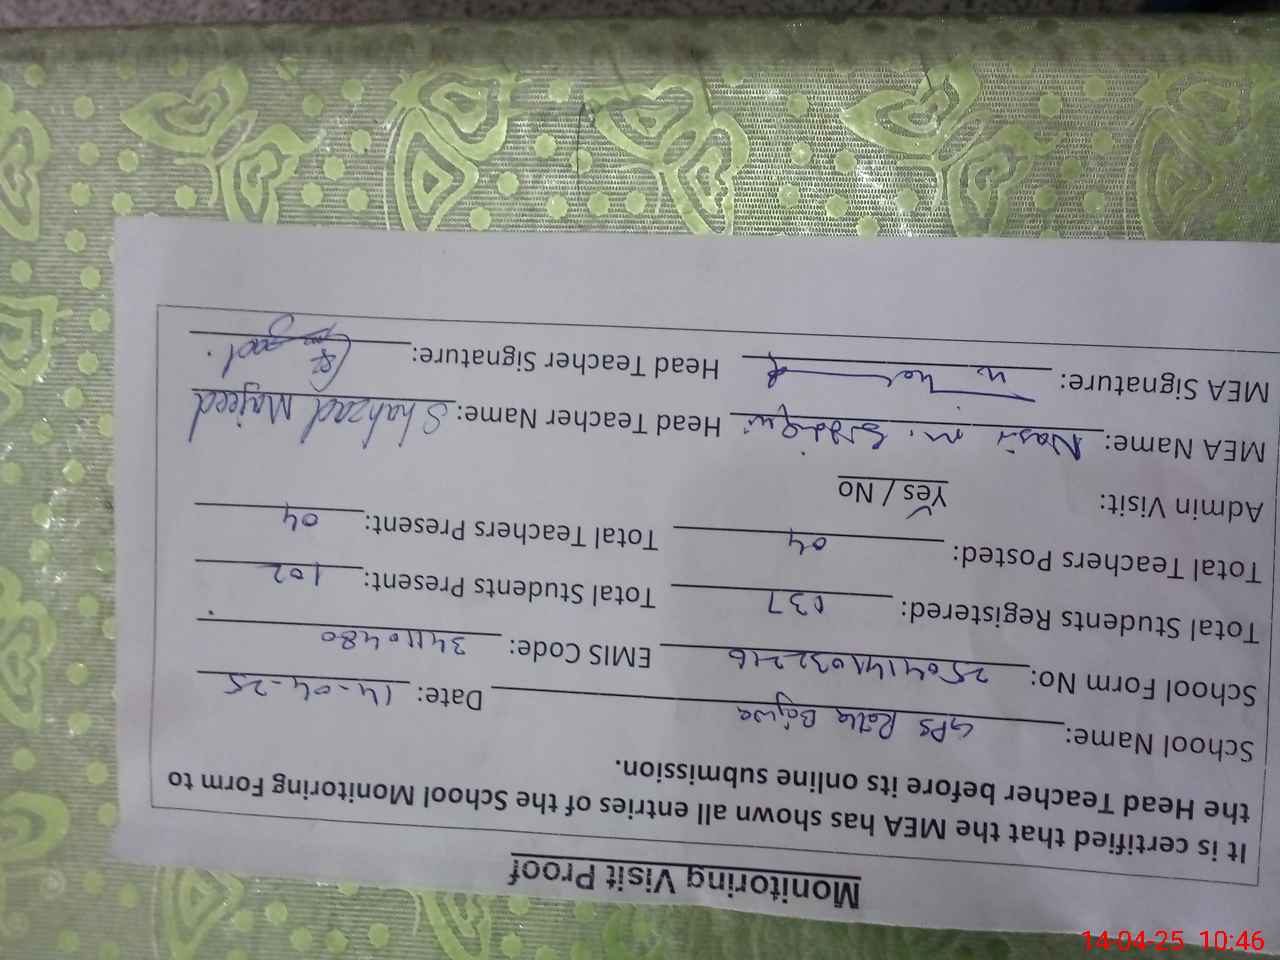 Monitoring Visit Proof
It is certified that the MEA has shown all entries of the School Monitoring Form to
the Head Teacher before its online submission.
School Name: GPS Ratta Bajwa Date: 14-04-25
School Form No: 2504141032216 EMIS Code: 34110480
Total Students Registered: 137 Total Students Present: 102
Total Teachers Posted: 04 Total Teachers Present: 04
Admin Visit: Yes / No
MEA Name: Nasir M. Siddiqui Head Teacher Name: Shahzad Majeed
MEA Signature: Head Teacher Signature:
14-04-25 10:46